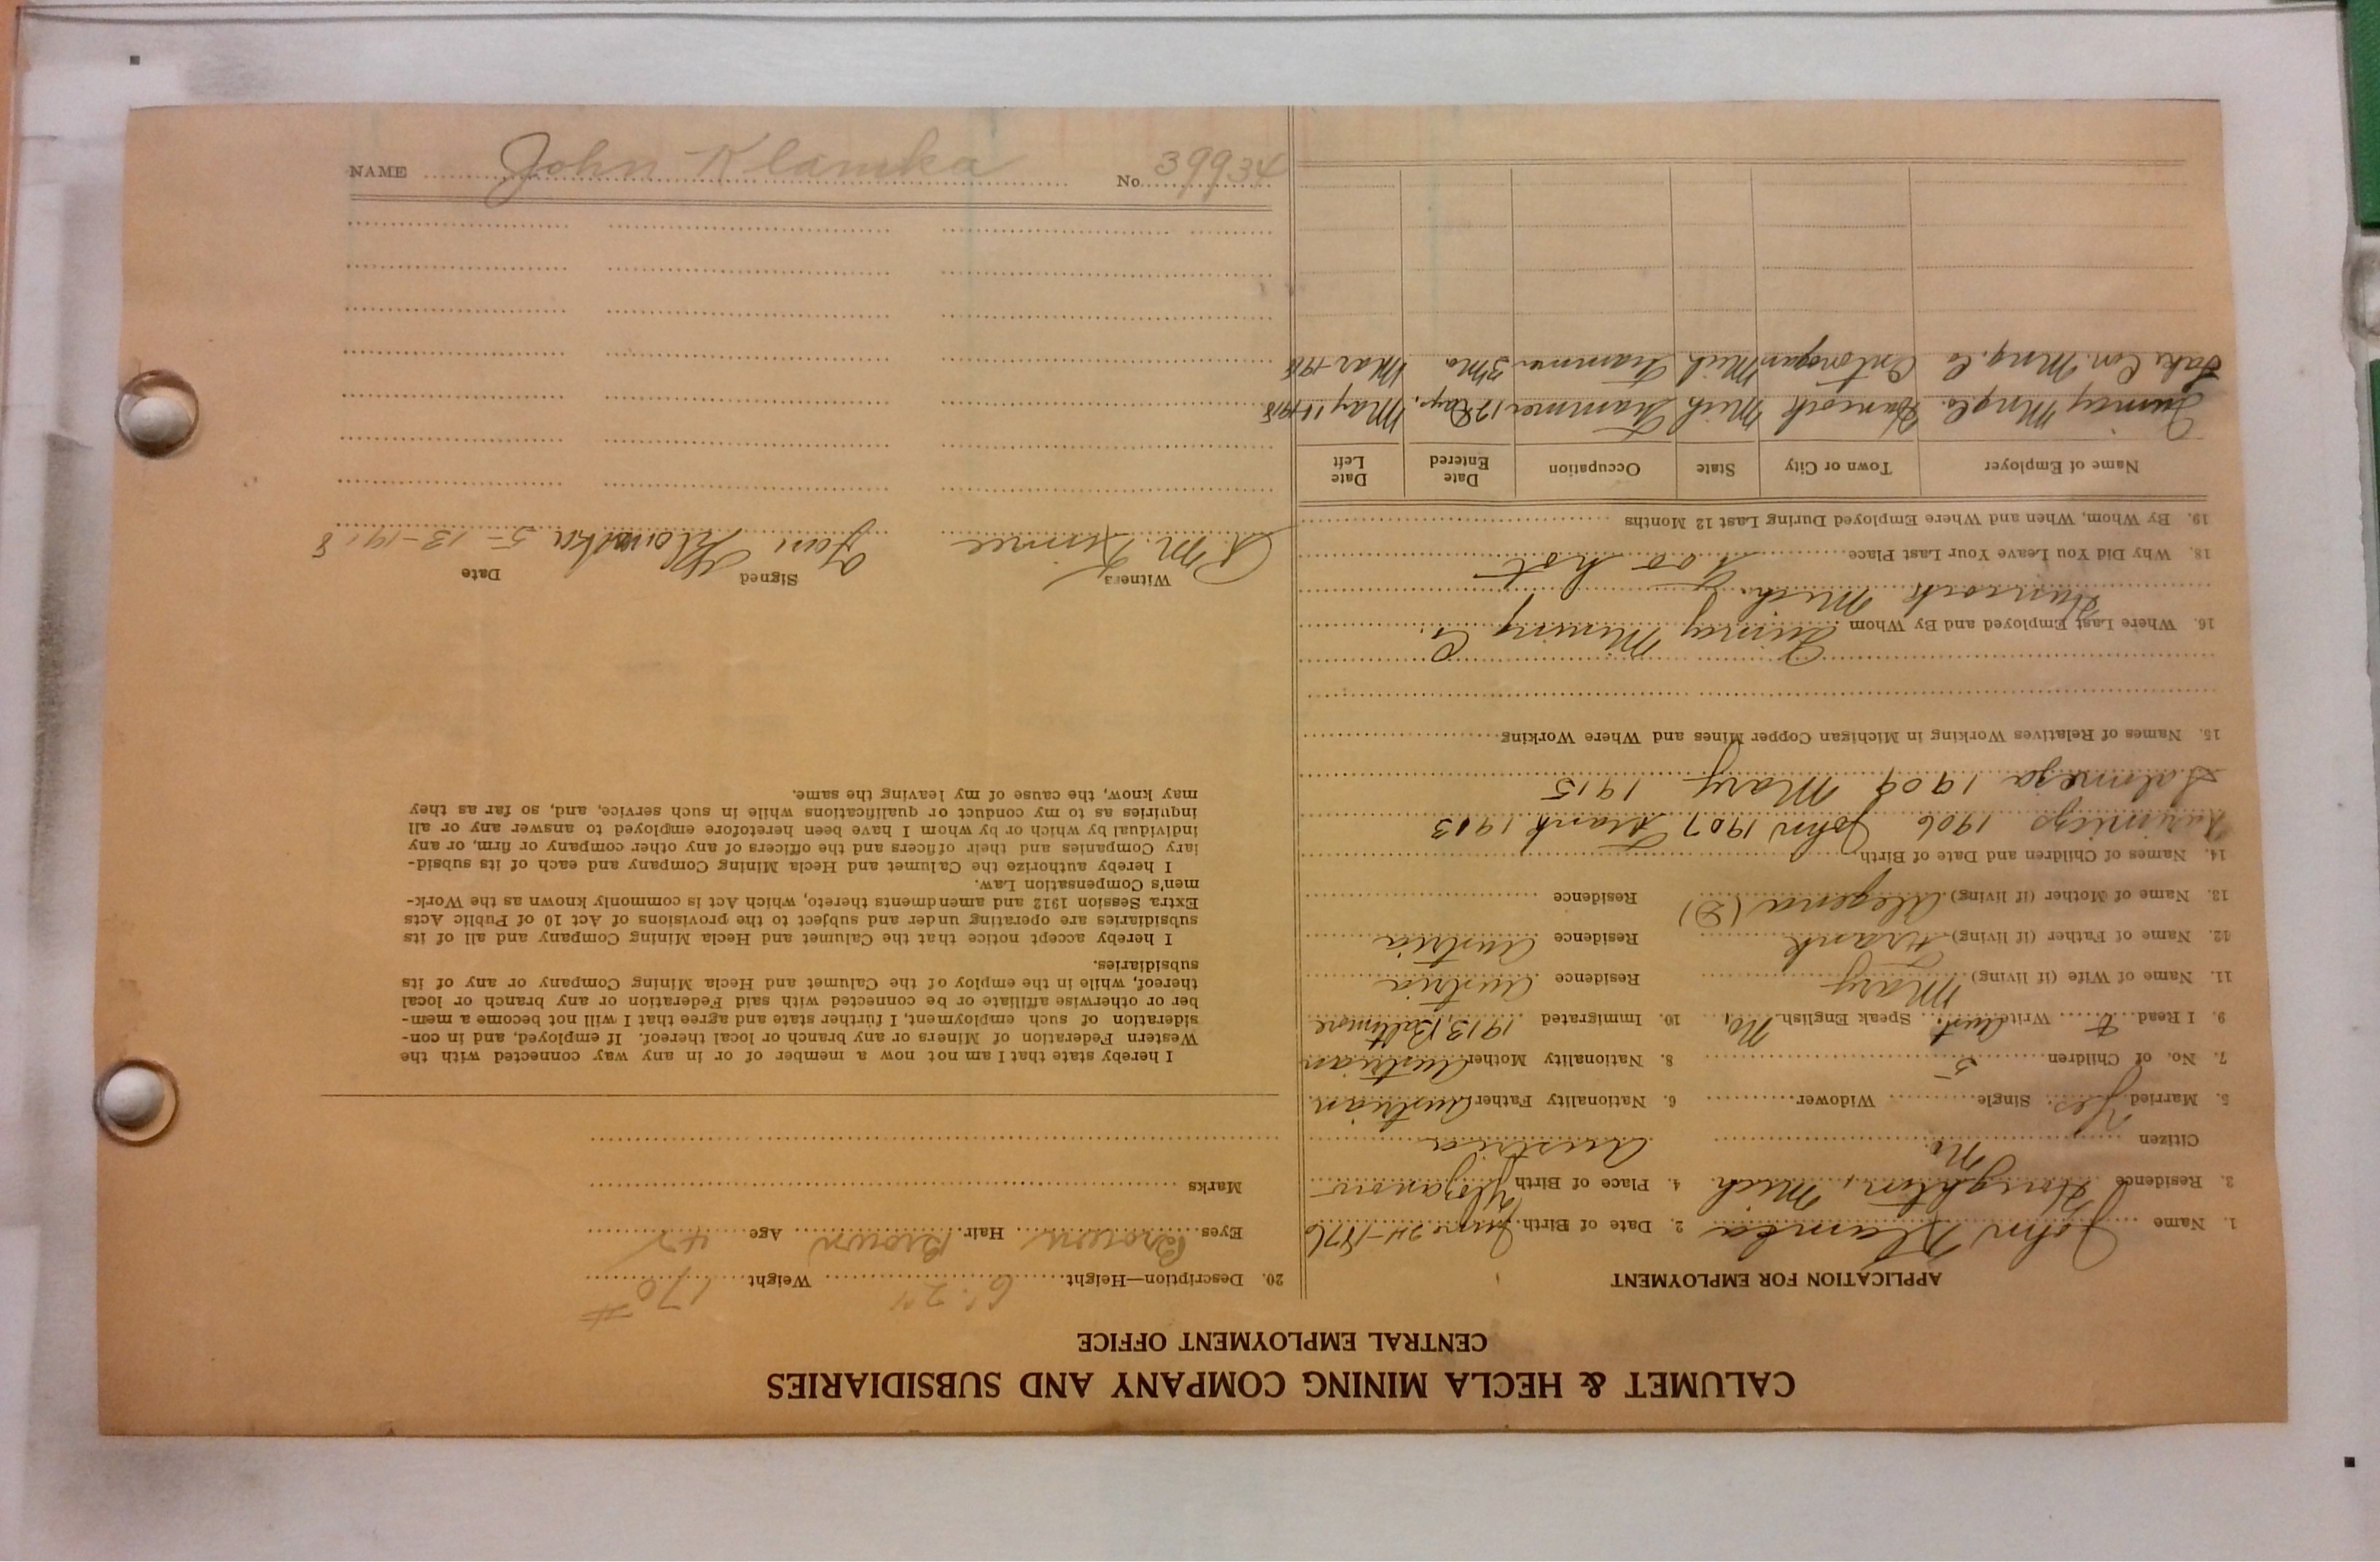 CALUMET & HECLA MINING COMPANY AND SUBSIDIARIES
CENTRAL EMPLOYMENT OFFICE
APPLICATION FOR EMPLOYMENT
1. Name John Klamka 2. Date of Birth June 24-1876
3. Residence Houghton, Mich 4. Place of Birth
Citizen No Austria
5. Married Yes Single Widower 6. Nationality Father Austrian
7. No. of Children 5 8. Nationality Mother Austrian
9. I Read & Write Aust Speak English No 10. Immigrated 1913 Baltimore
11. Name of Wife (if living) Mary Residence Austria
12. Name of Father (if living) Frank Residence Austria
13. Name of Mother (if living) (D) Residence
14. Names of Children and Date of Birth
1906 John 1907 Frank 1913
1909 Mary 1915
15. Names of Relatives Working in Michigan Copper Mines and Where Working
16. Where Last Employed and By Whom Quincy Mining Co.
Hancock Mich.
18. Why Did You Leave Your Last Place Too hot
19. By Whom, When and Where Employed During Last 12 Months
Name of Employer Town or City State Occupation Date Entered Date Left
Quincy Mng Co. Hancock Mich Mich Trammer 12 Days. May 11-1918
Lake Con. Mng. Co Ontonogan Mich Mich Trammer 3 Mo Mar 1918
20. Description—Height 6' 2" Weight 170 #
Eyes Brown Hair Brown Age 42
Marks
I hereby state that I am not now a member of or in any way connected with the
Western Federation of Miners or any branch or local thereof. If employed, and in con-
sideration of such employment, I further state and agree that I will not become a mem-
ber or otherwise affiliate or be connected with said Federation or any branch or local
thereof, while in the employ of the Calumet and Hecla Mining Company or any of its
subsidiaries.
I hereby accept notice that the Calumet and Hecla Mining Company and all of its
subsidiaries are operating under and subject to the provisions of Act 10 of Public Acts
Extra Session 1912 and amendments thereto, which Act is commonly known as the Work-
men's Compensation Law.
I hereby authorize the Calumet and Hecla Mining Company and each of its subsid-
iary Companies and their officers and the officers of any other company or firm, or any
individual by which or by whom I have been heretofore employed to answer any or all
inquiries as to my conduct or qualifications while in such service, and, so far as they
may know, the cause of my leaving the same.
Witness Signed Date
Jan Klamka 5-13-1918
NAME John Klamka No. 39934